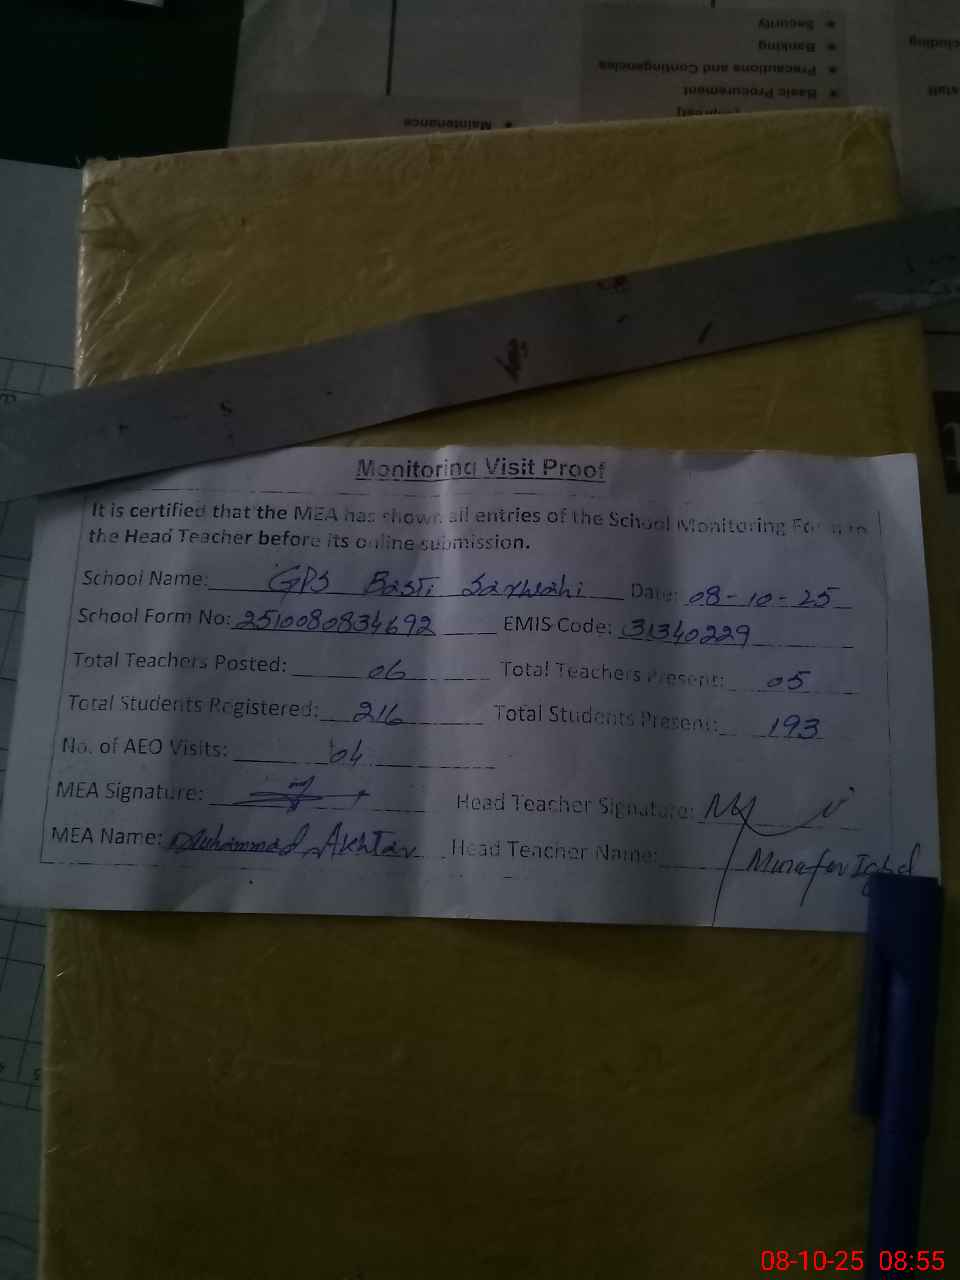 Security
Banking
Precautions and Contingencies
Basic Procurement
Maintenance
Monitoring Visit Proof
It is certified that the MEA has shown all entries of the School Monitoring Form to
the Head Teacher before its online submission.
School Name: GPS Basti Date: 08-10-25
School Form No: 2510080834692 EMIS Code: 31340229
Total Teachers Posted: 06 Total Teachers Present: 05
Total Students Registered: 216 Total Students Present: 193
No. of AEO Visits: 04
MEA Signature: Head Teacher Signature:
MEA Name: Muhammad Akhtar Head Teacher Name: Iqbal
08-10-25 08:55